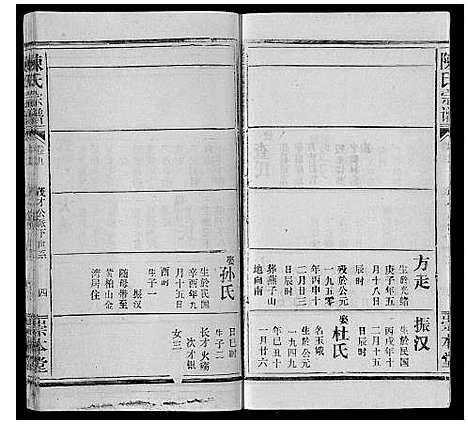 陳氏宗譜
崇本堂
方走
生於光緒
庚子年五
月十八日
辰时
殁於公元
一九五零
年丙申十
二月廿三
日辰时
葬燕子山
地向南
娶孙氏
生於民国
辛酉年九
月十五日
酉时
生子一
振汉
随母带至
黄柏山金
湾居住
振汉
生於民国
丙戌年十
二月十五
辰时
娶杜氏
名玉娥
生於公元
一九四九
一月廿六
日巳时
生子二
长才火
次才银
女三
陳氏宗譜
四
崇本堂